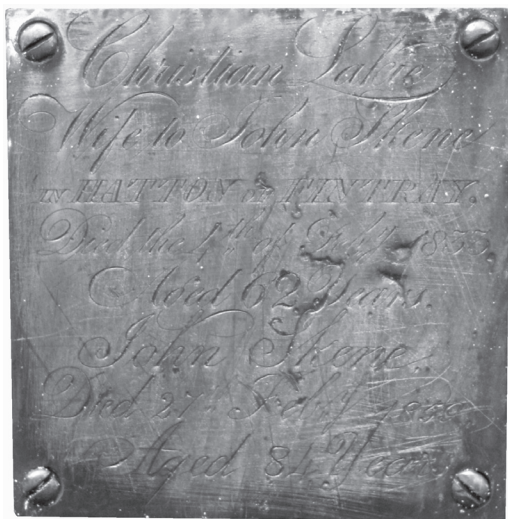 Christian
Wife to John Skene
IN HATTON of FINTRAY.
Died the 4th of Feby. 1833,
Agid 62 Years.
John Skene
Died 27th Feby
Aged 84 Years